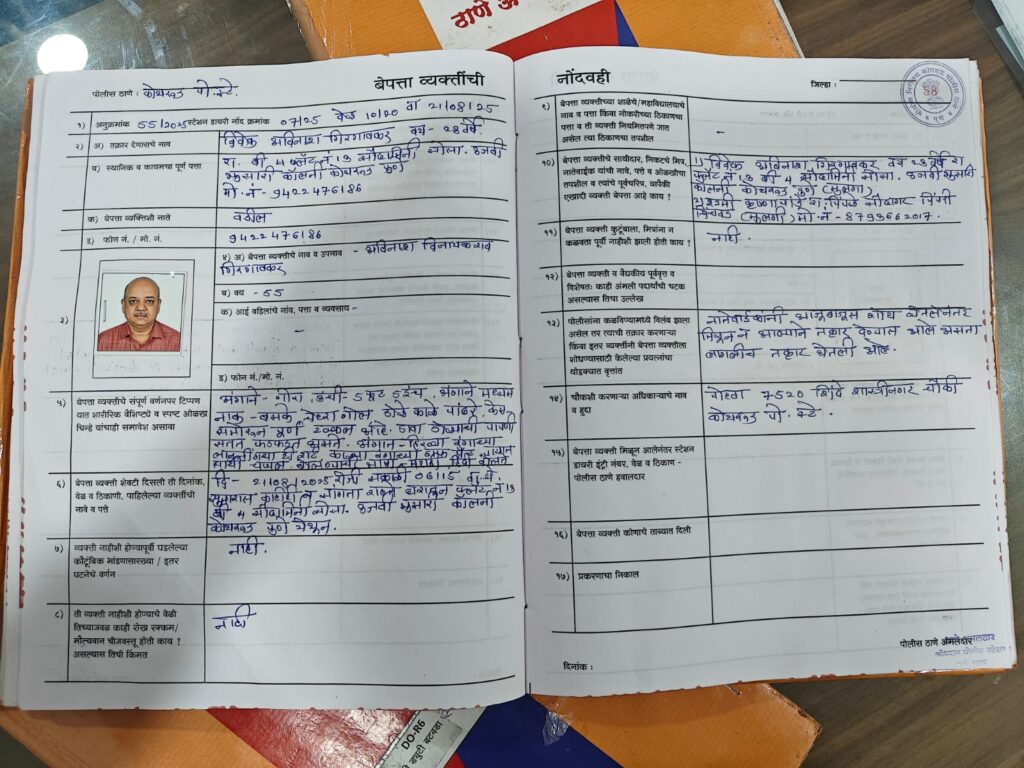 ठाणे अं
बेपत्ता व्यक्तींची
पोलीस ठाणे : कोथरुड पो.स्टे.
१) अनुक्रमांक 55/2025 स्टेशन डायरी नोंद क्रमांक 07/25 वेळ 10/20 ता 21/08/25
२) अ) तक्रार देणाराचे नाव
विवेक अविनाश गिरगावकर वय - 28 वर्षे
ब) स्थानिक व कायमचा पूर्ण पत्ता
रा. बी 4 फ्लॅट नं 13 सौदामिनी सोसा. उजवी
भुसारी कॉलनी कोथरुड पुणे
मो. नं - 9422476186
क) बेपत्ता व्यक्तिशी नाते
वडील
ड) फोन नं. / मो. नं.
9422476186
३)
४ अ) बेपत्ताचे नाव व उपनाव - अविनाश विनायकराव
गिरगावकर
ब) वय - 55
क) आई वडिलांचे नांव, पत्ता व व्यवसाय -
-
ड) फोन नं./मो. नं.
५) बेपत्ता व्यक्तीचे संपूर्ण वर्णनपर टिप्पण
यात शारीरिक वैशिष्ट्ये व स्पष्ट ओळख
चिन्हे यांचाही समावेश असावा
अंगाने - गोरा उंची - 5 फुट 5 इंच, अंगाने मध्यम
नाक - बसके चेहरा गोल, डोळे काळे पांढरे, केस
समोरून पूर्ण टक्कल आहे. डाव्या डोळ्याची पापणी
सतत फडफडत असते. अंगात - रंगाच्या
६) बेपत्ता व्यक्ती शेवटी दिसली ती दिनांक,
वेळ व ठिकाणी, पाहिलेल्या व्यक्तींची
नावे व पत्ते
दि - 21/08/2025 रोजी सकाळी 06/15 वा.चे
सुमारास काहीही न सांगता राहते घरातून फ्लॅट नं 13
बी 4 सौदामिनी सोसा. उजवी भुसारी कॉलनी
कोथरुड पुणे येथून.
७) व्यक्ती नाहीशी होण्यापूर्वी घडलेल्या
कौटूंबिक भांडणासारख्या / इतर
घटनेचे वर्णन
नाही.
८) ती व्यक्ती नाहीशी होण्याचे वेळी
तिच्याजवळ काही रोख रक्कम/
मौल्यवान चीजवस्तू होती काय ?
असल्यास तिची किंमत
नाही
नोंदवही
जिल्हा :
58
९) बेपत्ता व्यक्तीच्या शाळेचे/महाविद्यालयाचे
नाव व पत्ता किंवा नोकरीच्या ठिकाणचा
पत्ता व ती व्यक्ती नियमितपणे जात
असेल त्या ठिकाणचा तपशील
-
१०) बेपत्ता व्यक्तीचे साथीदार, निकटचे मित्र,
नातेवाईक यांची नावे, पत्ते व ओळखीचा
तपशील व त्यांचे पूर्वचरित्र, यापैकी
एखादी व्यक्ती बेपत्ता आहे काय ?
1) विवेक अविनाश गिरगावकर वय 28 वर्षे रा
फ्लॅट नं 13 बी 4 सौदामिनी सोसा. उजवी भुसारी
कॉलनी कोथरुड पुणे (मुलगा),
रा. पिंपळे सौदागर पिंपरी
चिंचवड (मुलगा) मो. नं - 8793662017.
११) बेपत्ता व्यक्ती कुटूंबाला, मित्रांना न
कळवता पूर्वी नाहीशी झाली होती काय ?
नाही.
१२) बेपत्ता व्यक्ती व वैद्यकीय पूर्ववृत्त व
विशेषतः काही अंमली पदार्थाची चटक
असल्यास तिचा उल्लेख
१३) पोलीसांना कळविण्यामध्ये विलंब झाला
असेल तर त्याची तक्रार करणाऱ्या
किंवा इतर व्यक्तींनी बेपत्ता व्यक्तीला
शोधण्यासाठी केलेल्या प्रयत्नांचा
थोडक्यात वृत्तांत
नातेवाईकांनी आजूबाजूस शोध घेतलेनंतर
मिळून न आल्याने तक्रार देण्यात आले असता
लागलीच तक्रार घेतली आहे.
१४) चौकशी करणाऱ्या अधिकाऱ्याचे नाव
व हुद्दा
पोहवा 7520 शिंदे शास्त्रीनगर चौकी
कोथरुड पो. स्टे.
१५) बेपत्ता व्यक्ती मिळून आलेनंतर स्टेशन
डायरी इंट्री नंबर, वेळ व ठिकाण -
पोलीस ठाणे हवालदार
१६) बेपत्ता व्यक्ती कोणाचे ताब्यात दिली
१७) प्रकरणाचा निकाल
पोलीस ठाणे अंमलदार
दिनांक :
DO-R6
ड्युटी बटवडा